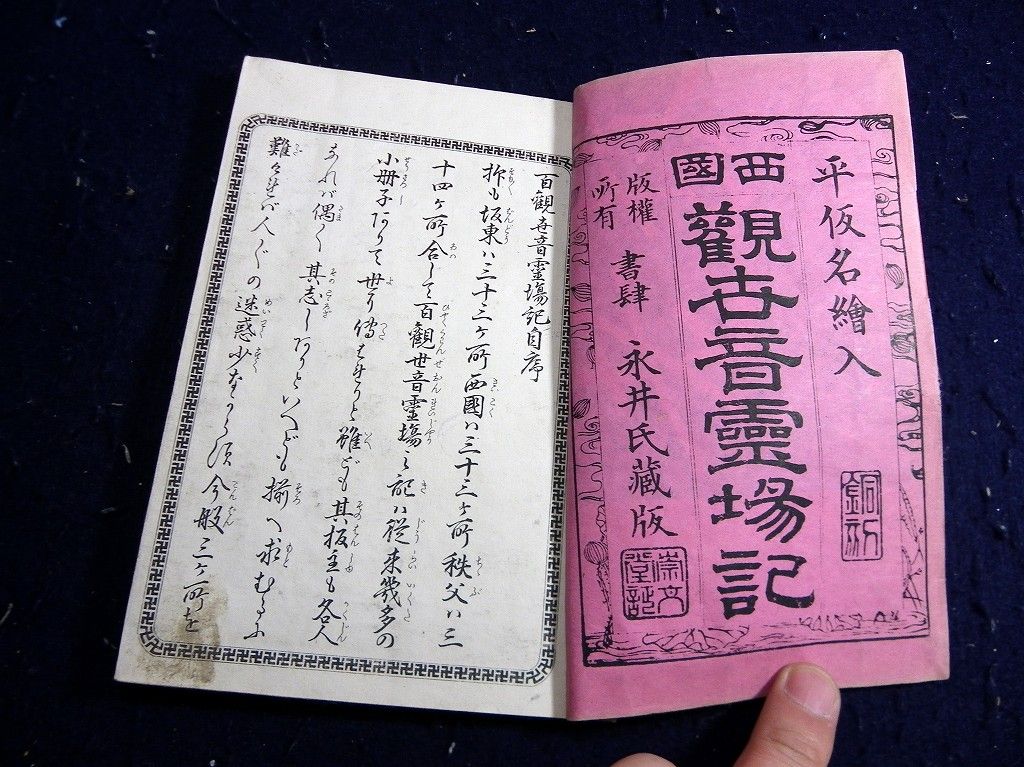 平仮名繪入
銅刻
西國
觀世音靈場記
版權
所有
書肆 永井氏藏版
崇文堂記
百觀世音靈塲記自序
抑も坂東ハ三十三ケ所西國ハ三十三ケ所秩父ハ三
十四ケ所合して百觀世音靈塲之記ハ從來幾多の
小冊子ありて世に傳はると雖ども其板主も各人
あれバ偶々其志しありといへども揃へ求むるに
難けれバ人々の迷惑少なからず今般三ケ所を